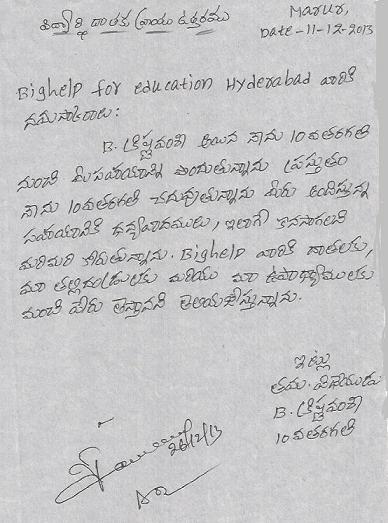 విద్యార్థి దాతకు వ్రాయు ఉత్తరము
Marur,
Date-11-12-2013
Bighelp for education Hyderabad వారికి
నమస్కారాలు:
B. క్రిష్ణవంశి అయిన నాను 10వతరగతి
నుంచి మీ సహాయాన్ని పొందుతున్నాను ప్రస్తుతం
నాను 10వతరగతి చదువుతున్నాను మీరు అందిస్తున్న
సహాయానికి ధన్యవాదములు, ఇలాగే కొనసాగాలని
మరిమరి కోరుతున్నాను. Bighelp వారికి దాతలకు,
మా తల్లిదండ్రులకు మరియు మా ఉపాధ్యాయులకు
మంచి పేరు తెస్తానని తెలియజేస్తున్నాను.
ఇట్లు
తమ విధేయుడు
B. క్రిష్ణవంశి
10వతరగతి